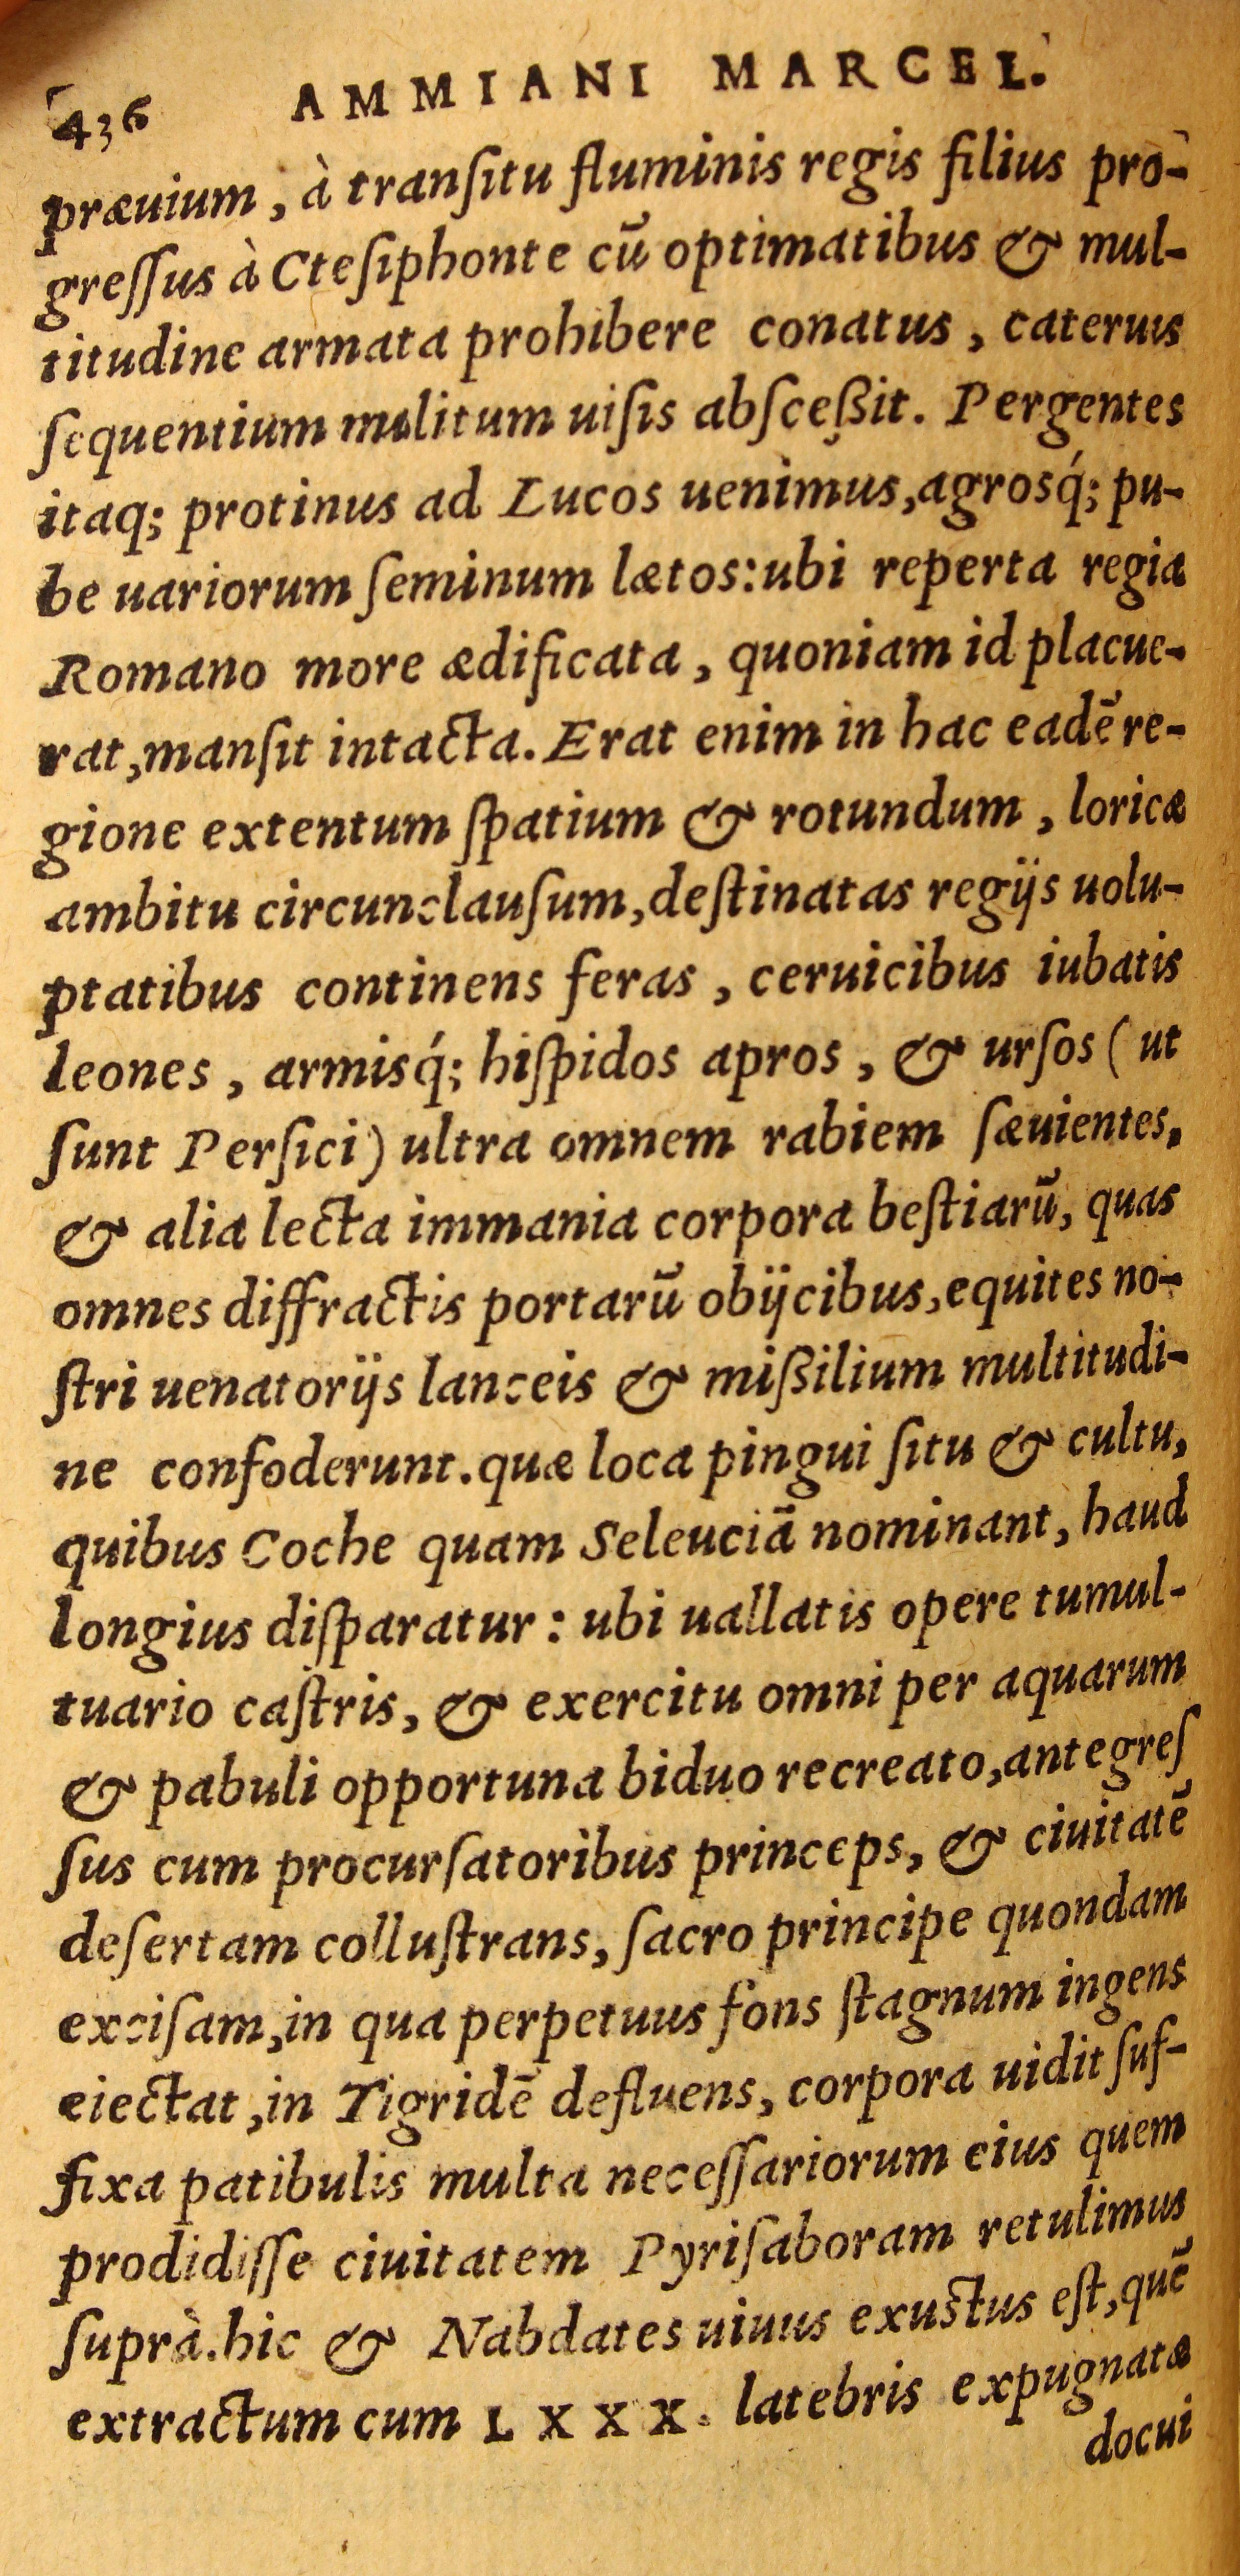 436 AMMIANI MARCEL.
præuium, à tranſitu fluminis regis filius pro-
greſſus à Cteſiphonte cū optimatibus & mul-
titudine armata prohibere conatus, cateruis
ſequentium militum uiſis abſceßit. Pergentes
itaq; protinus ad Lucos uenimus, agrosq́; pu-
be uariorum ſeminum lætos: ubi reperta regia
Romano more ædificata, quoniam id placue-
rat, manſit intacta. Erat enim in hac eadē re-
gione extentum ſpatium & rotundum, loricæ
ambitu circunclauſum, deſtinatas regijs uolu-
ptatibus continens feras, ceruicibus iubatis
leones, armisq́; hiſpidos apros, & urſos (ut
ſunt Perſici) ultra omnem rabiem ſæuientes,
& alia lecta immania corpora beſtiarū, quas
omnes diffractis portarū obijcibus, equites no-
ſtri uenatorijs lanceis & mißilium multitudi-
ne confoderunt. quæ loca pingui ſitu & cultu,
quibus Coche quam Seleuciā nominant, haud
longius diſparatur: ubi uallatis opere tumul-
tuario caſtris, & exercitu omni per aquarum
& pabuli opportuna biduo recreato, antegreſ
ſus cum procurſatoribus princeps, & ciuitatē
deſertam colluſtrans, ſacro principe quondam
exciſam, in qua perpetuus fons ſtagnum ingens
eiectat, in Tigridē defluens, corpora uidit ſuf-
fixa patibulis multa neceſſariorum eius quem
prodidiſſe ciuitatem Pyriſaboram retulimus
ſuprà. hic & Nabdates uiuus exustus eſt, quē
extractum cum LXXX. latebris expugnatæ
docui